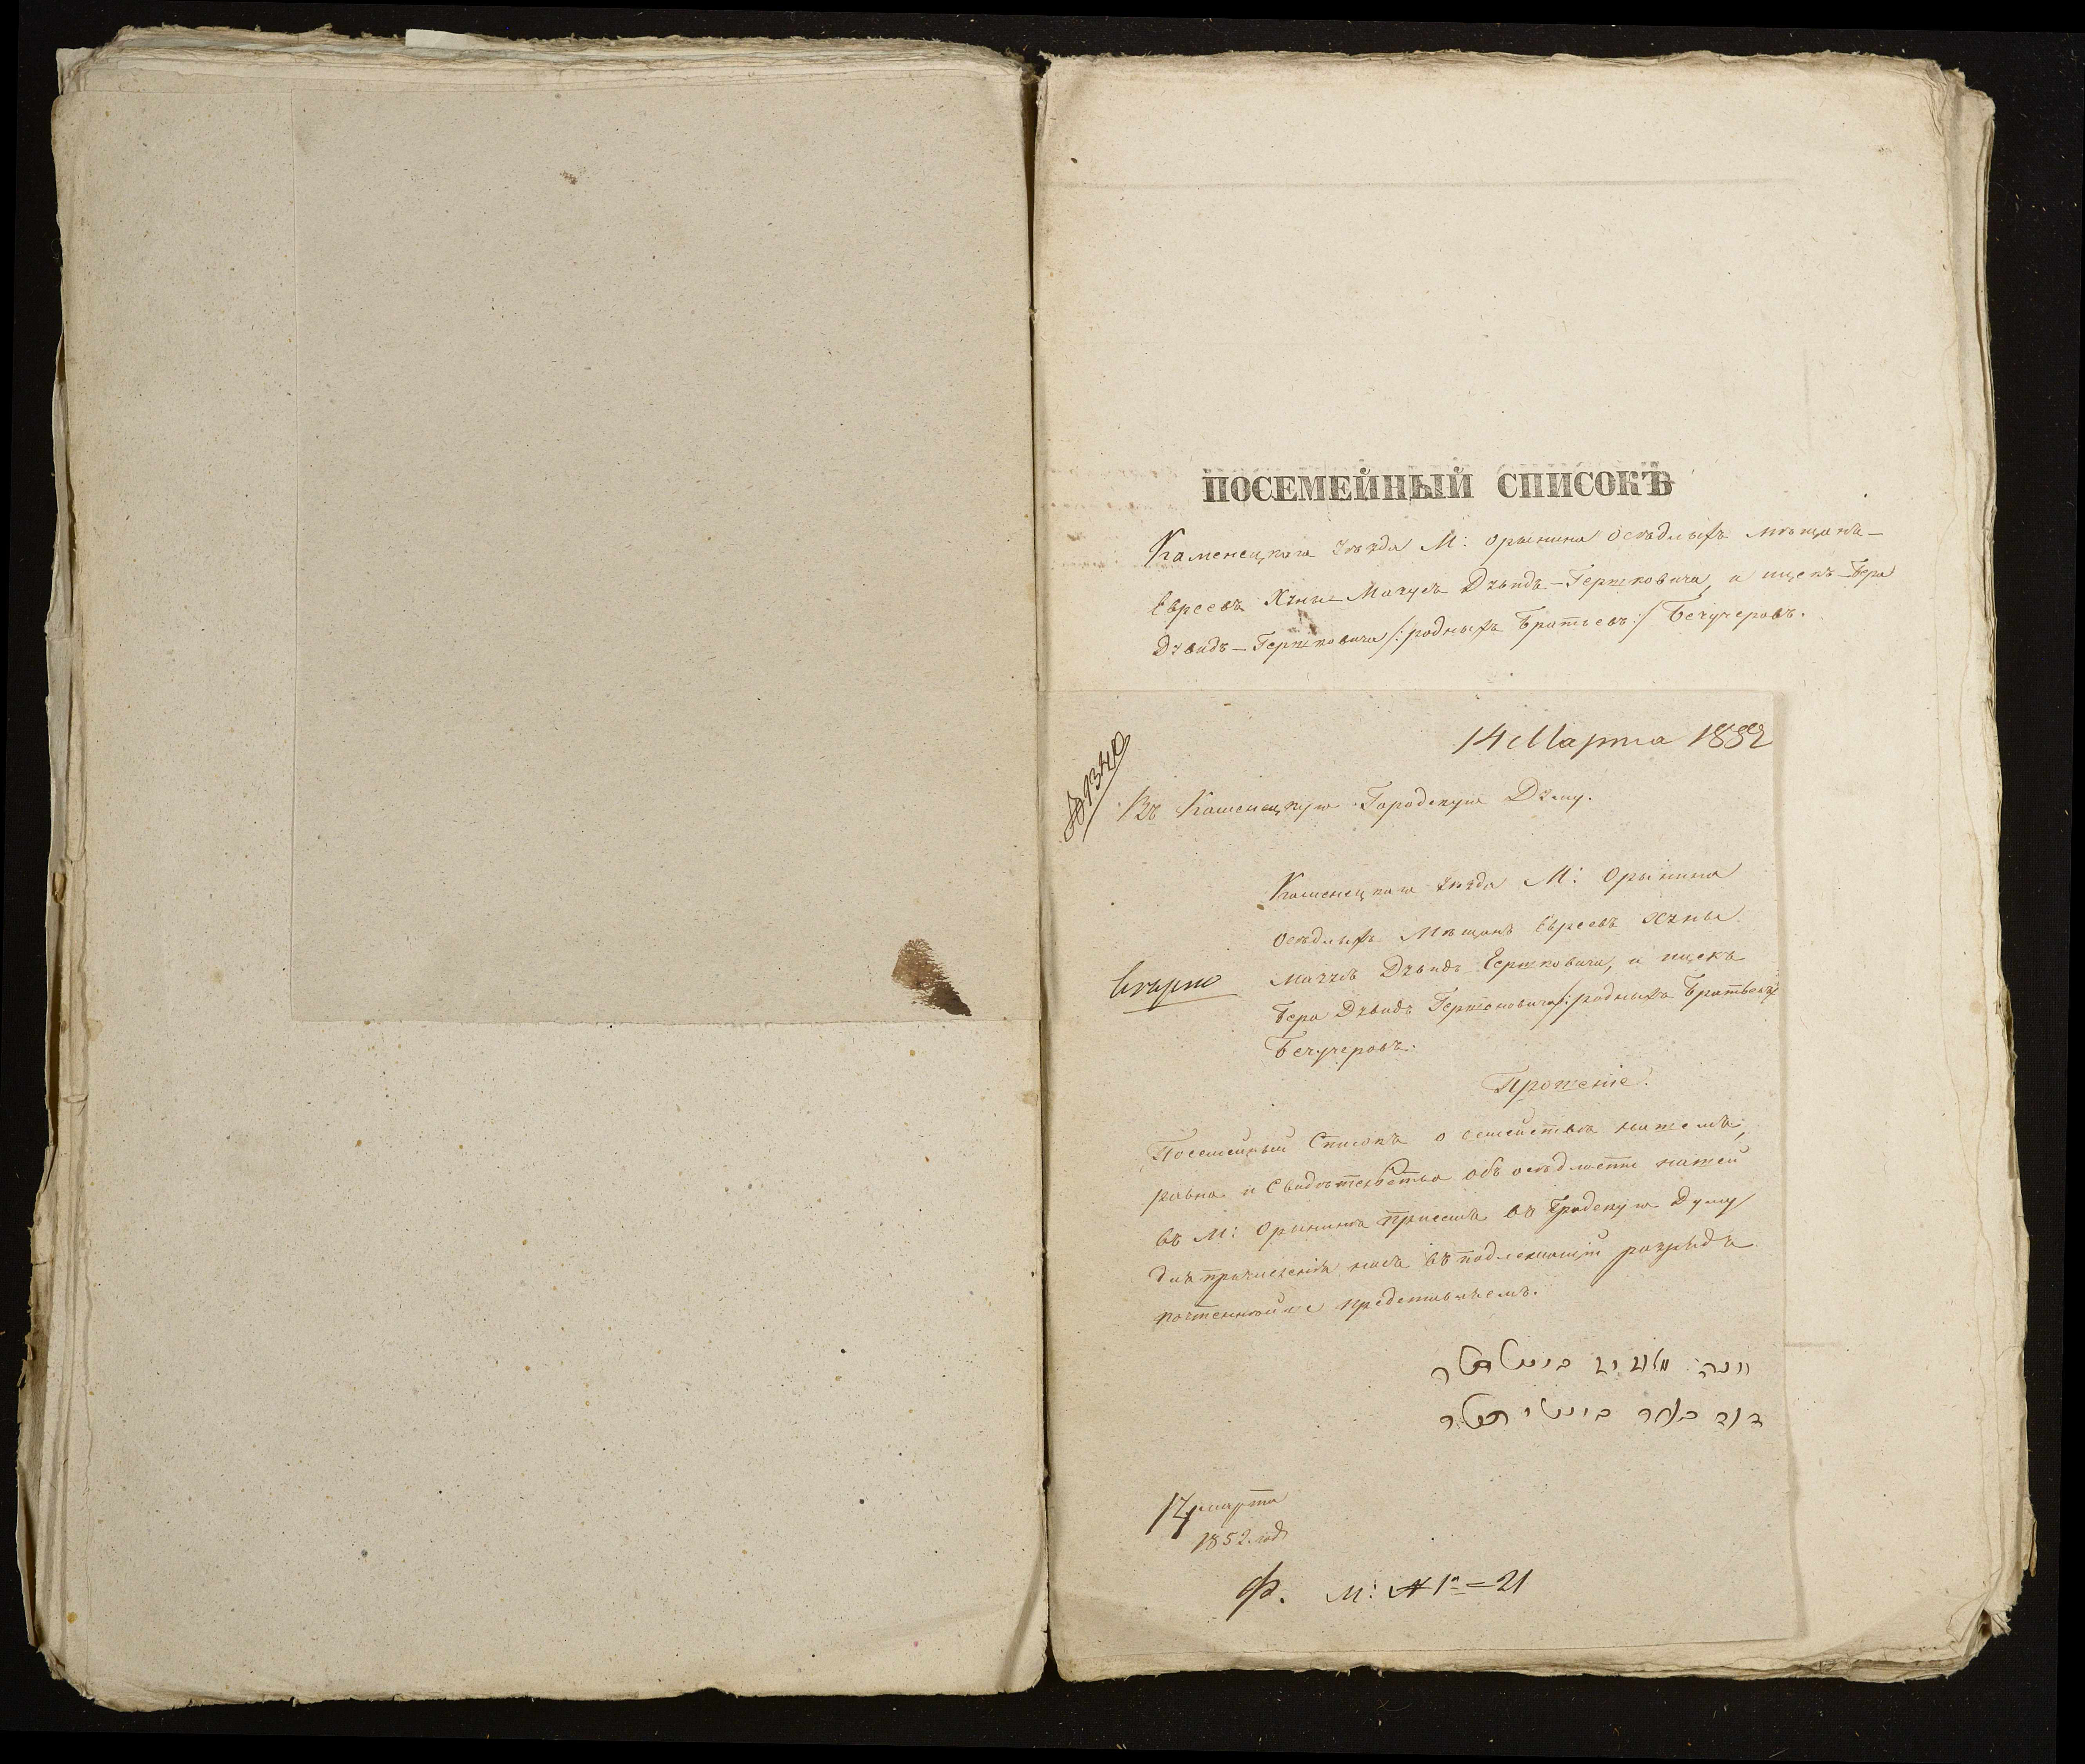 ПОСЕМЕЙНЫЙ СПИСОКЪ
Каменецкаго уѣзда М: Орынина осѣдлыхъ мѣщанъ-
Евреевъ Хуны Давидъ-Гершковича, и Ицекъ-Бера
Давидъ-Гершковича /:родныхъ Братьевъ:/
14 Марта 1852
№ 1340
Въ Каменецкую Городскую Думу.
Каменецкаго уѣзда М: Орынина
осѣдлыхъ Мѣщанъ Евреевъ Хуны
Давидъ Гершковича, и Ицекъ
Бера Давидъ Гершковича /:родныхъ Братьевъ:/
Прошеніе.
Посемейный Списокъ о семействѣ нашемъ,
равно и Свидѣтельство объ осѣдлости нашей
въ М: Орынинѣ при семъ въ Градскую Думу
для причисленія насъ въ подлежащій разрядъ
почтеннѣйше представляемъ.
דוד בער
14 марта
1852 года
Ф. М: № 1 = 21